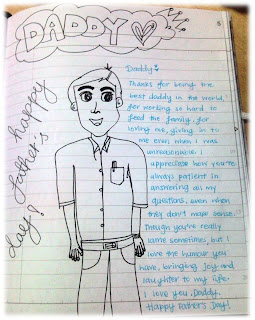 DADDY
happy
father's
day!
Daddy
Thanks for being the
best daddy in the world,
for working so hard to
feed the family, for
loving me, giving in to
me even when I was
unreasonable. I
appreciate how you're
always patient in
answering all my
questions, even when
they don't make sense.
Though you're really
lame sometimes, but I
love the humour you
have, bringing joy and
laughter to my life.
I love you, Daddy.
Happy Father's Day!